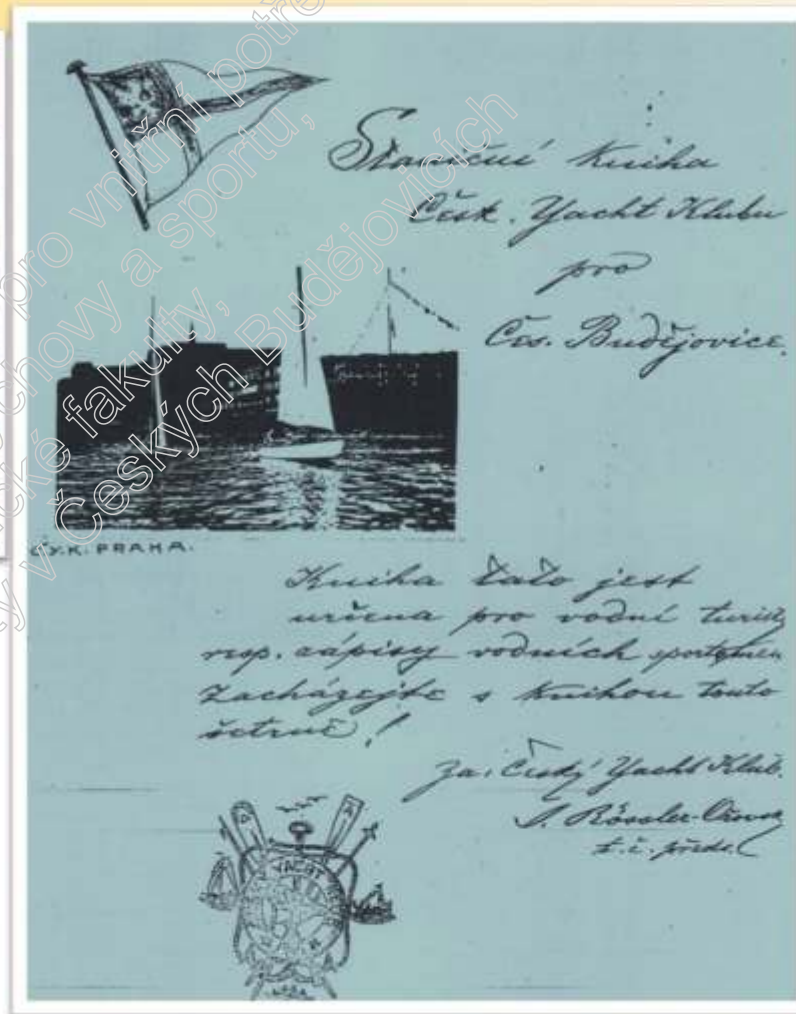 Staniční kniha
Česk. Yacht Klubu
pro
Čes. Budějovice.
Č.Y.K. PRAHA.
Kniha tato jest
určena pro vodní turisty
resp. zápisy vodních sportsmen
Zacházejte s knihou touto
šetrně!
Za: Český Yacht Klub.
J. Rössler-Ořovský
t.č. předs.
YACHT
pro vnitřní potře
chovy a sportu,
ické fakulty,
ty v Českých Budějovicích